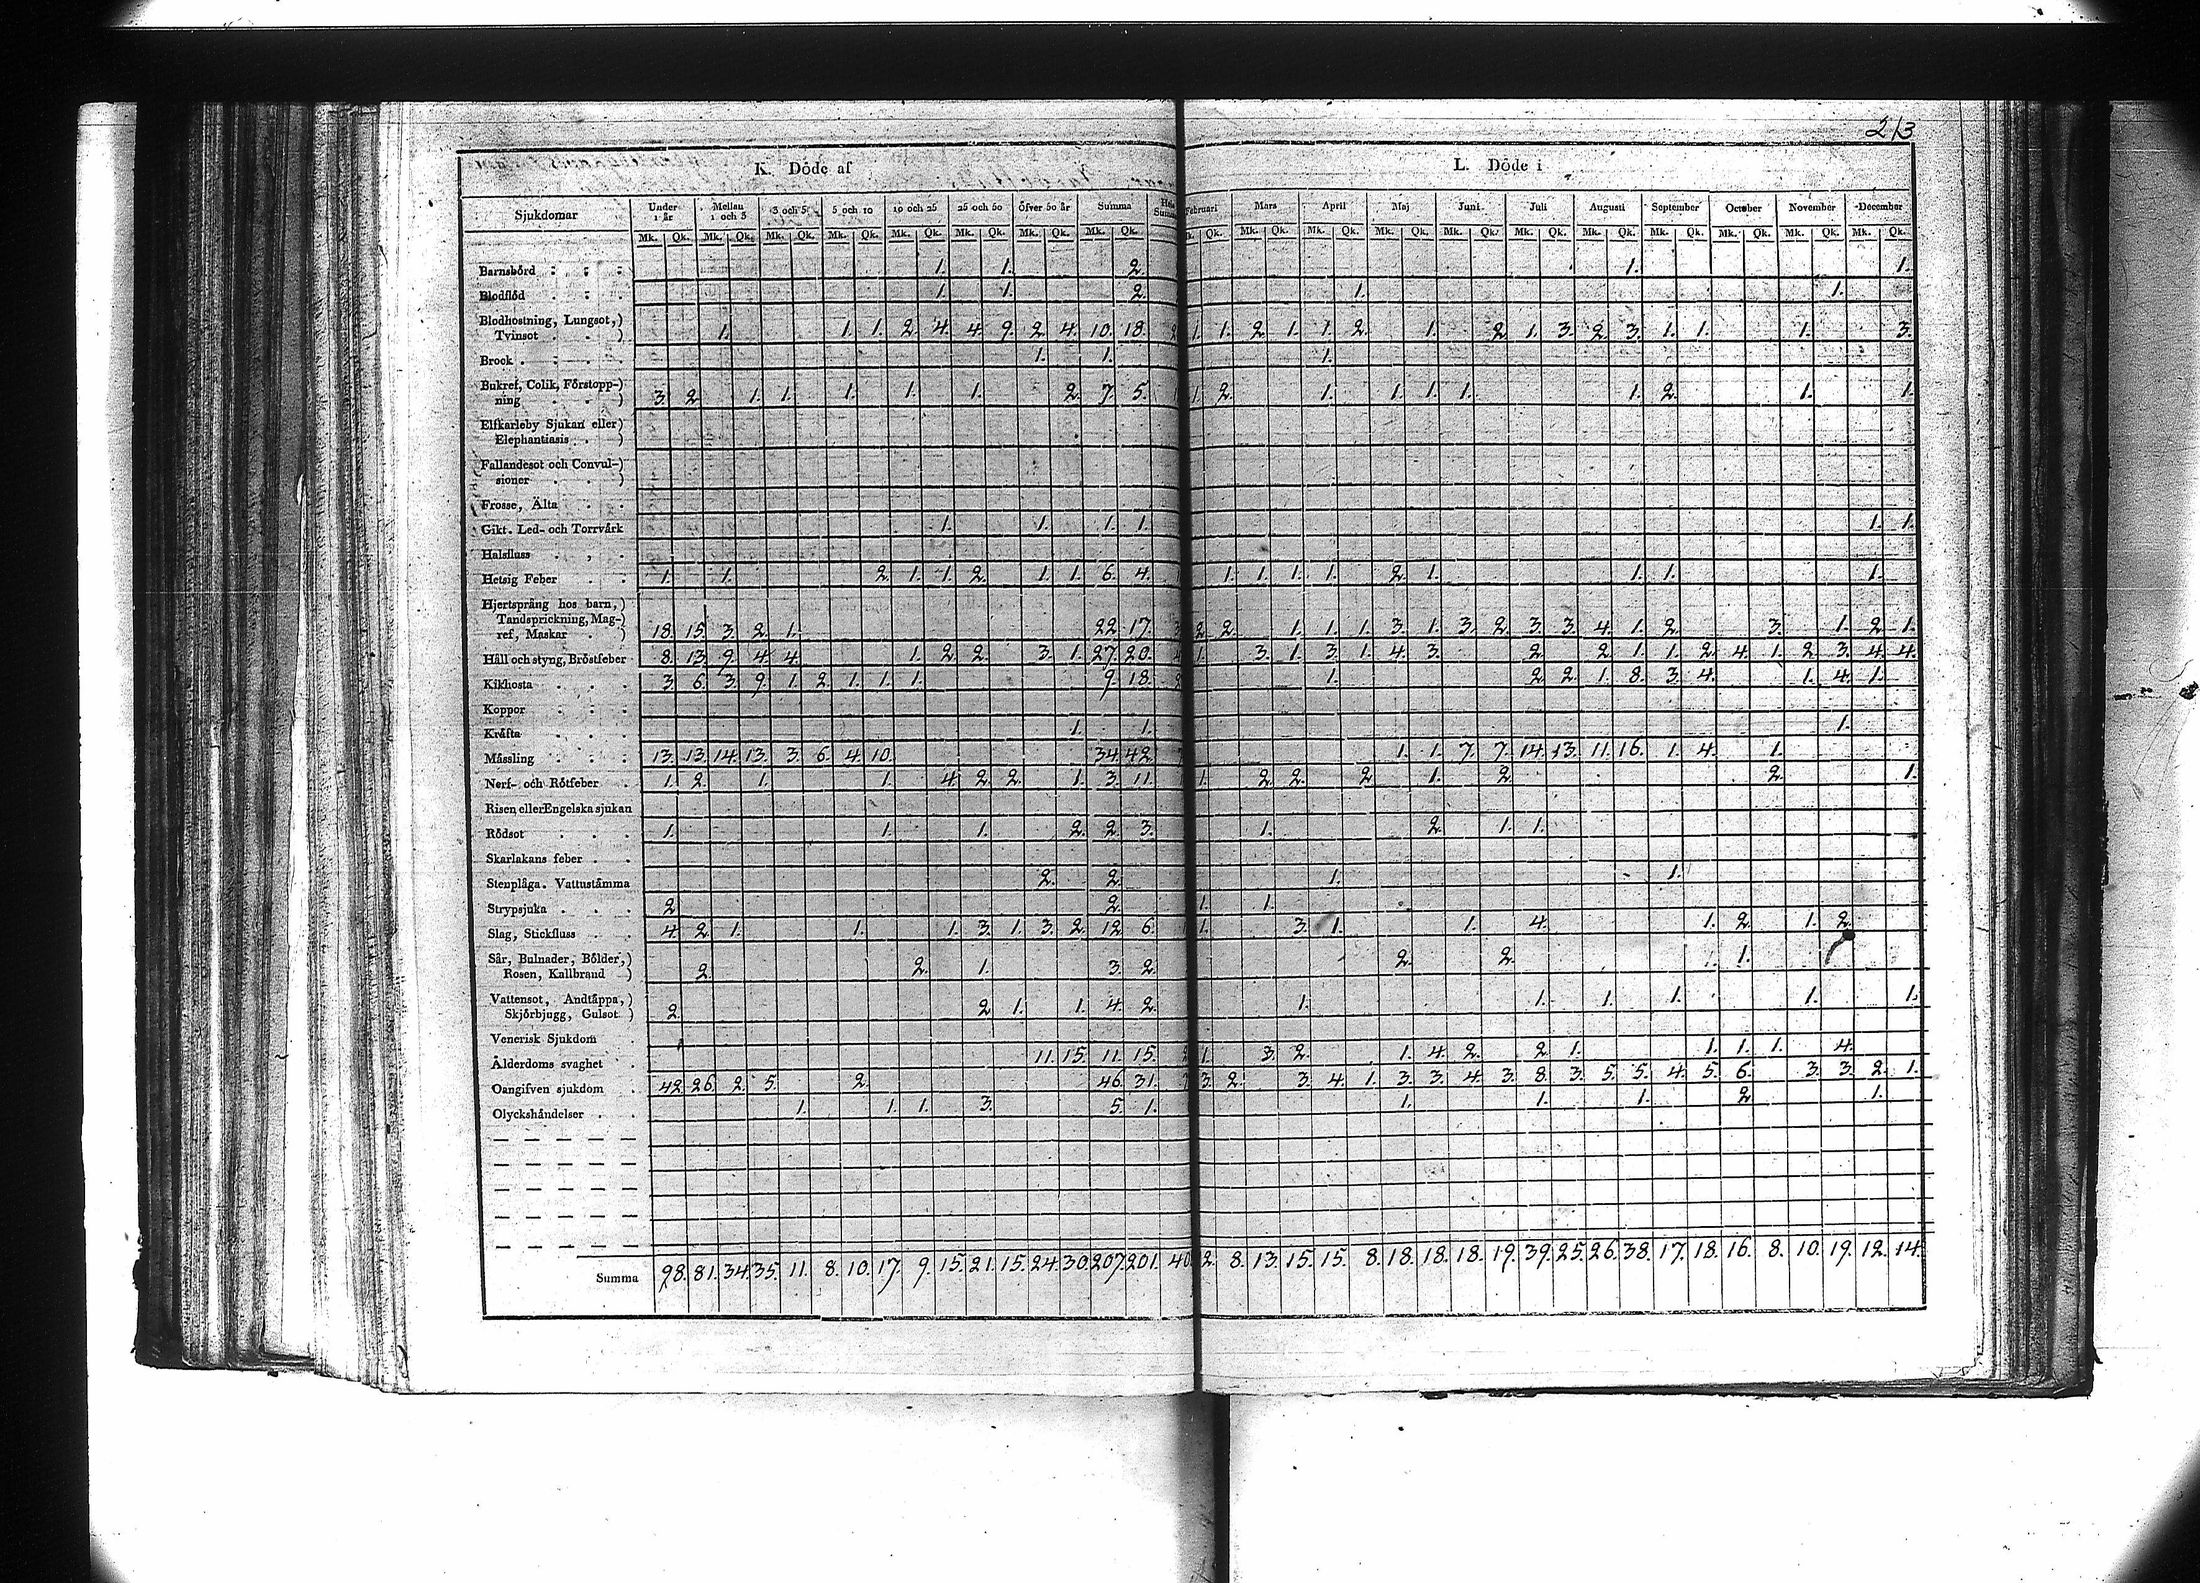 213
K. Döde af
L. Döde i
Sjukdomar | Under 1 år | Mellan 1 och 3 | 3 och 5 | 5 och 10 | 10 och 25 | 25 och 50 | Öfver 50 år | Summa | Hela Summa | Februari | Mars | April | Maj | Juni | Juli | Augusti | September | October | November | December
Mk. Qk. Mk. Qk. Mk. Qk. Mk. Qk. Mk. Qk. Mk. Qk. Mk. Qk. Mk. Qk. | Qk. Mk. Qk. Mk. Qk. Mk. Qk. Mk. Qk. Mk. Qk. Mk. Qk. Mk. Qk. Mk. Qk. Mk. Qk. Mk. Qk.
Barnsbörd 1. 1. 2. | 1. 1.
Blodflöd 1. 1. 2. | 1. 1.
Blodhostning, Lungsot,)
Tvinsot ) 1. 1. 1. 2. 4. 4. 9. 2. 4. 10. 18. | 1. 1. 2. 1. 1. 2. 1. 2. 1. 3. 2. 3. 1. 1. 1. 3.
Brock 1. 1. | 1.
Bukref, Colik, Förstopp-)
ning ) 3. 2. 1. 1. 1. 1. 1. 2. 7. 5. | 1. 2. 1. 1. 1. 1. 1. 2. 1. 1.
Elfkarleby Sjukan eller)
Elephantiasis )
Fallandesot och Convul-)
sioner )
Frosse, Älta
Gikt. Led- och Torrvärk 1. 1. 1. 1. | 1. 1.
Halsfluss
Hetsig Feber 1. 1. 2. 1. 1. 2. 1. 1. 6. 4. | 1. 1. 1. 1. 2. 1. 1. 1. 1.
Hjertsprång hos barn,)
Tandsprickning, Mag-)
ref, Maskar ) 18. 15. 3. 2. 1. 22. 17. | 2. 2. 1. 1. 1. 3. 1. 3. 2. 3. 3. 4. 1. 2. 3. 1. 2. 1.
Håll och styng, Bröstfeber 8. 13. 9. 4. 4. 1. 2. 2. 3. 1. 27. 20. | 1. 3. 1. 3. 1. 4. 3. 2. 2. 1. 1. 2. 4. 1. 2. 3. 4. 4.
Kikhosta 3. 6. 3. 9. 1. 2. 1. 1. 1. 9. 18. | 1. 2. 2. 1. 8. 3. 4. 1. 4. 1.
Koppor
Kräfta 1. 1. | 1.
Mässling 13. 13. 14. 13. 3. 6. 4. 10. 34. 42. | 1. 1. 7. 7. 14. 13. 11. 16. 1. 4. 1.
Nerf- och Rötfeber 1. 2. 1. 1. 4. 2. 2. 1. 3. 11. | 1. 2. 2. 2. 1. 2. 2. 1.
Risen eller Engelska sjukan
Rödsot 1. 1. 1. 2. 2. 3. | 1. 2. 1. 1.
Skarlakans feber
Stenplåga. Vattustämma 2. 2. | 1. 1.
Strypsjuka 2. 2. | 1. 1.
Slag, Stickfluss 4. 2. 1. 1. 1. 3. 1. 3. 2. 12. 6. | 1. 3. 1. 1. 4. 1. 2. 1. 2.
Sår, Bulnader, Bölder,)
Rosen, Kallbrand ) 2. 2. 1. 3. 2. | 2. 2. 1.
Vattensot, Andtäppa,)
Skjörbjugg, Gulsot ) 2. 2. 1. 1. 4. 2. | 1. 1. 1. 1. 1. 1.
Venerisk Sjukdom
Ålderdoms svaghet 11. 15. 11. 15. | 1. 3. 2. 1. 4. 2. 2. 1. 1. 1. 1. 4.
Oangifven sjukdom 42. 26. 2. 5. 2. 46. 31. | 3. 2. 3. 4. 1. 3. 3. 4. 3. 8. 3. 5. 5. 4. 5. 6. 3. 3. 2. 1.
Olyckshändelser 1. 1. 1. 3. 5. 1. | 1. 1. 1. 2. 1.
Summa 98. 81. 34. 35. 11. 8. 10. 17. 9. 15. 21. 15. 24. 30. 207. 201. 40 | 2. 8. 13. 15. 15. 8. 18. 18. 18. 19. 39. 25. 26. 38. 17. 18. 16. 8. 10. 19. 12. 14.